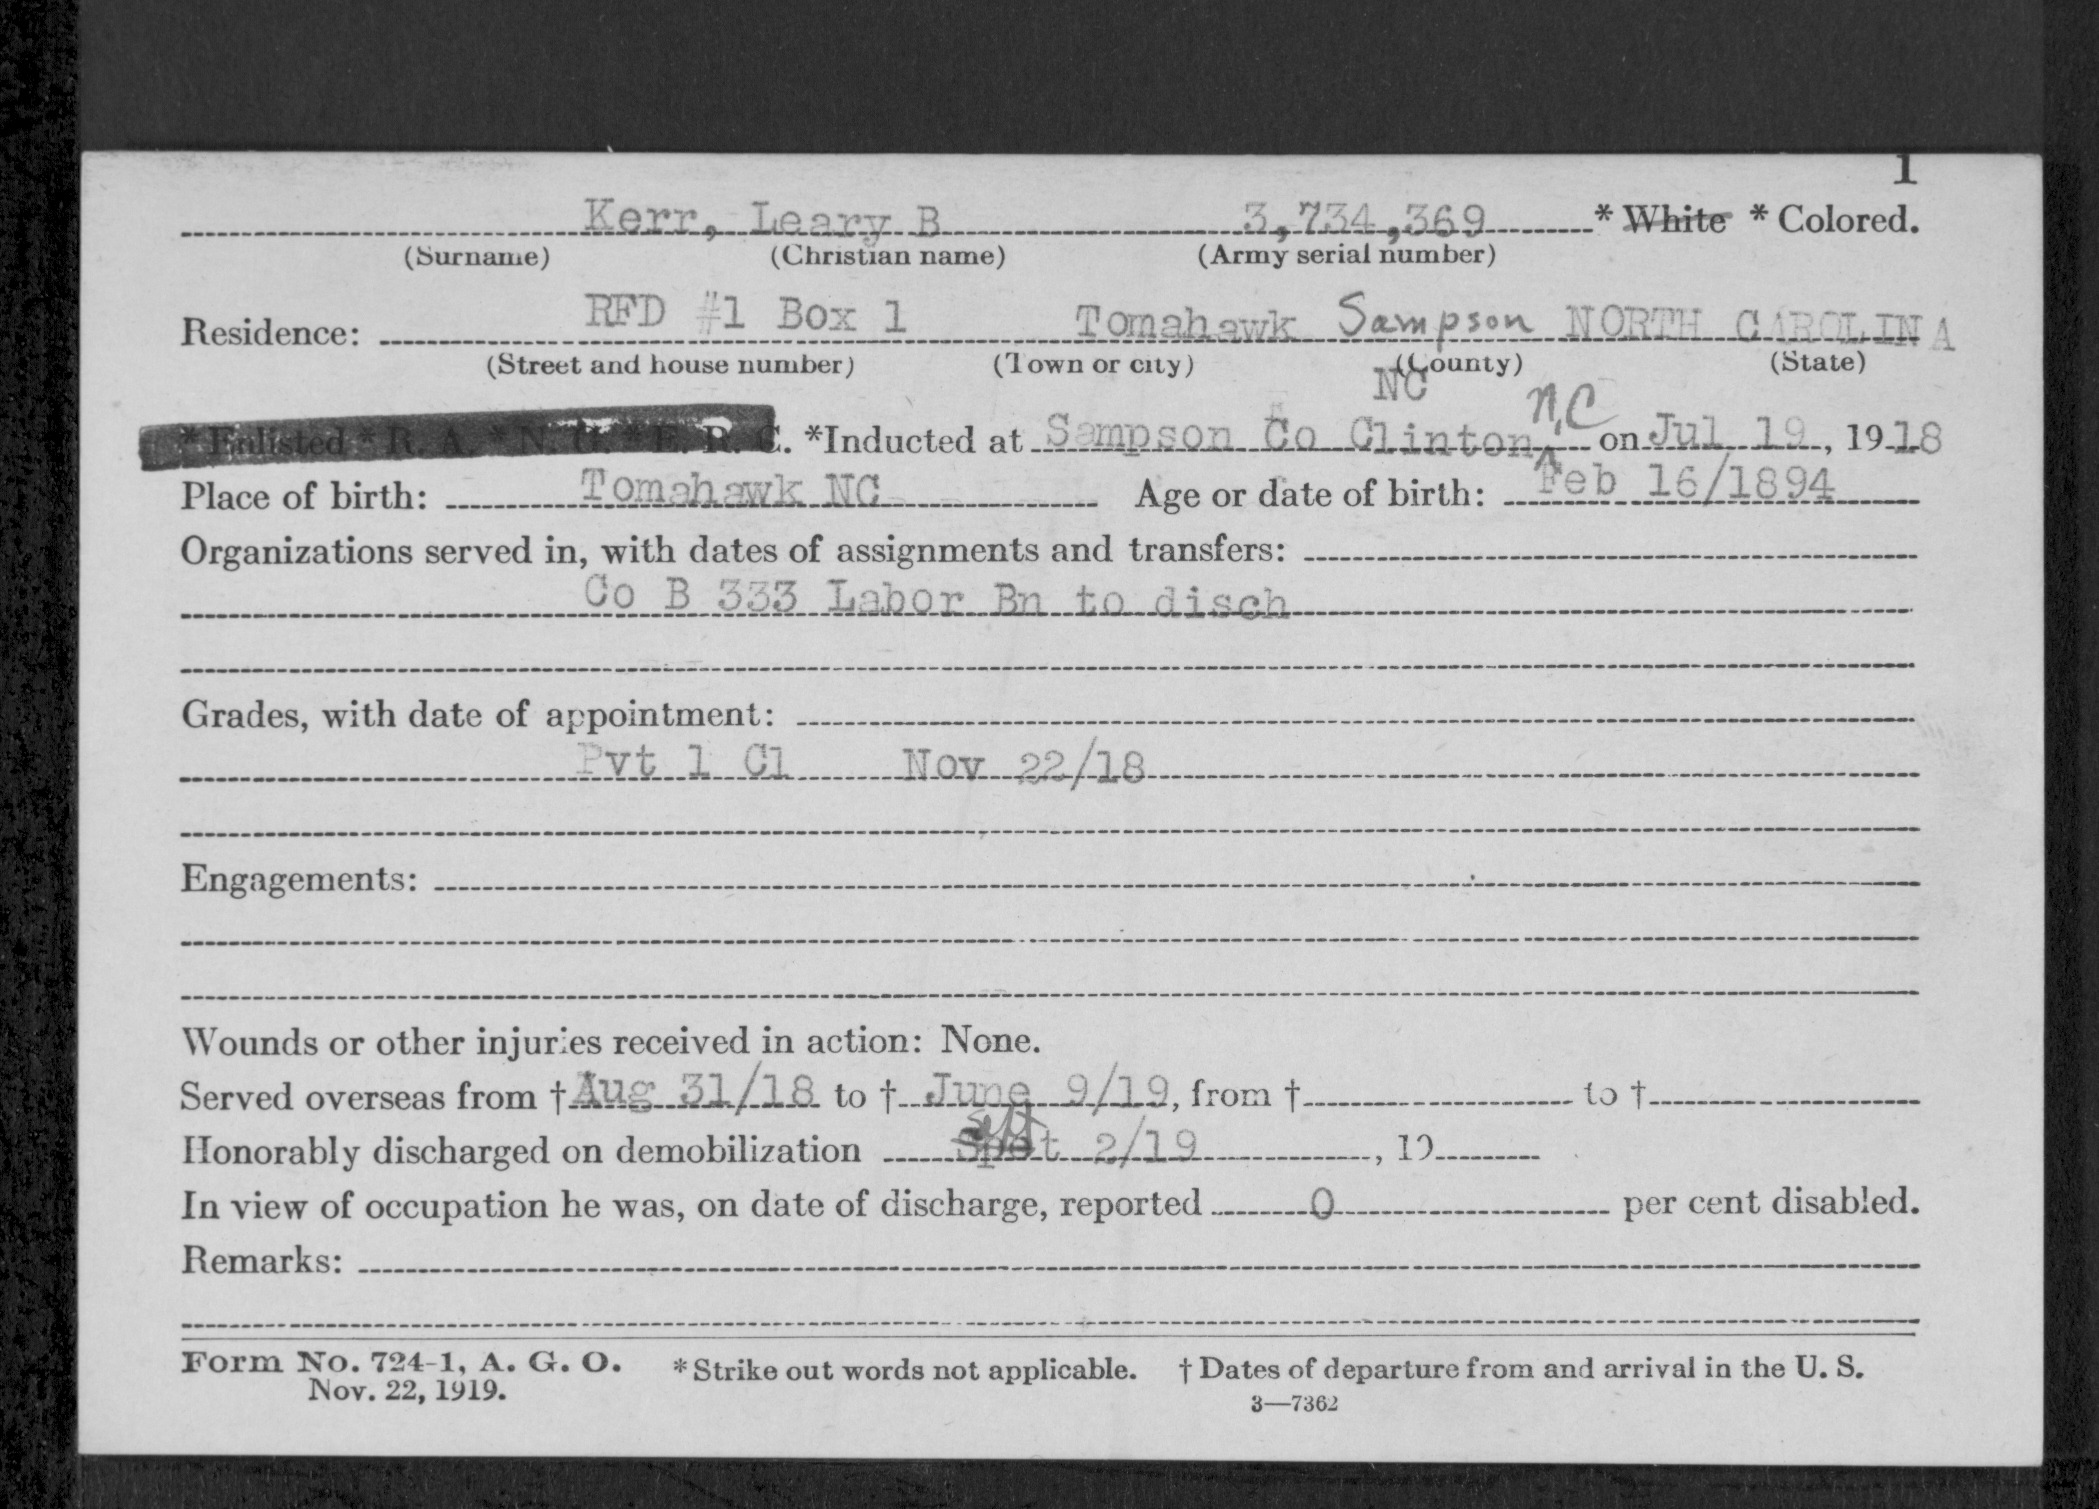 1
Kerr, Leary B 3,734,369 * White * Colored.
(Surname) (Christian name) (Army serial number)
Residence: RFD #1 Box 1 Tomahawk Sampson NORTH CAROLINA
(Street and house number) (Town or city) (County) (State)
NC
N.C
*Enlisted *R. A. *N. G. *E. R. C. *Inducted at Sampson Co Clinton, on Jul 19, 1918
Place of birth: Tomahawk NC Age or date of birth: Feb 16/1894
Organizations served in, with dates of assignments and transfers:
Co B 333 Labor Bn to disch
Grades, with date of appointment:
Pvt 1 Cl Nov 22/18
Engagements:
Wounds or other injuries received in action: None.
Served overseas from † Aug 31/18 to † June 9/19, from † to †
Honorably discharged on demobilization Spet 2/19, 19
In view of occupation he was, on date of discharge, reported 0 per cent disabled.
Remarks:
Form No. 724-1, A. G. O. * Strike out words not applicable. † Dates of departure from and arrival in the U. S.
Nov. 22, 1919.
3—7362